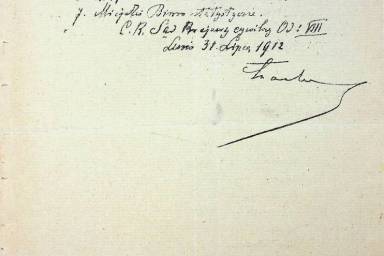 7. Miejskie Biuro statystyczne.
C. K. Sąd Krajowy cywilny Od: VIII
Lwów 31. Lipca 1912